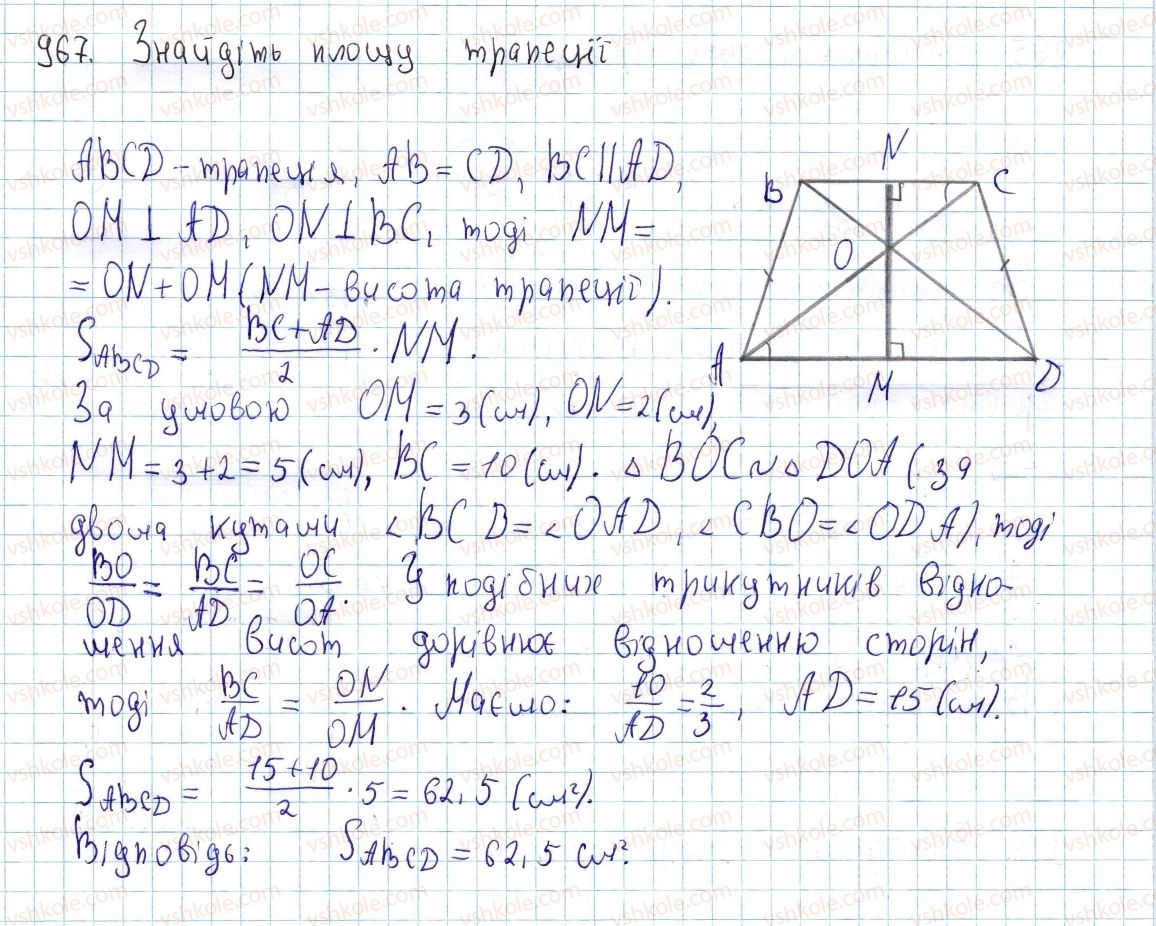 967. Знайдіть площу трапеції
ABCD - трапеція, AB = CD, BC || AD,
OM ⊥ AD, ON ⊥ BC, тоді NM =
= ON + OM (NM - висота трапеції).
S_ABCD = (BC + AD)/2 · NM.
За умовою OM = 3 (см), ON = 2 (см),
NM = 3 + 2 = 5 (см), BC = 10 (см). △ BOC ~ △ DOA (за
двома кутами ∠ BCD = ∠ OAD, ∠ CBO = ∠ ODA), тоді
BO/OD = BC/AD = OC/OA. У подібних трикутників відно-
шення висот дорівнює відношенню сторін,
тоді BC/AD = ON/OM. Маємо: 10/AD = 2/3, AD = 15 (см).
S_ABCD = (15 + 10)/2 · 5 = 62,5 (см²).
Відповідь: S_ABCD = 62,5 см².
N
B
C
O
A
M
D